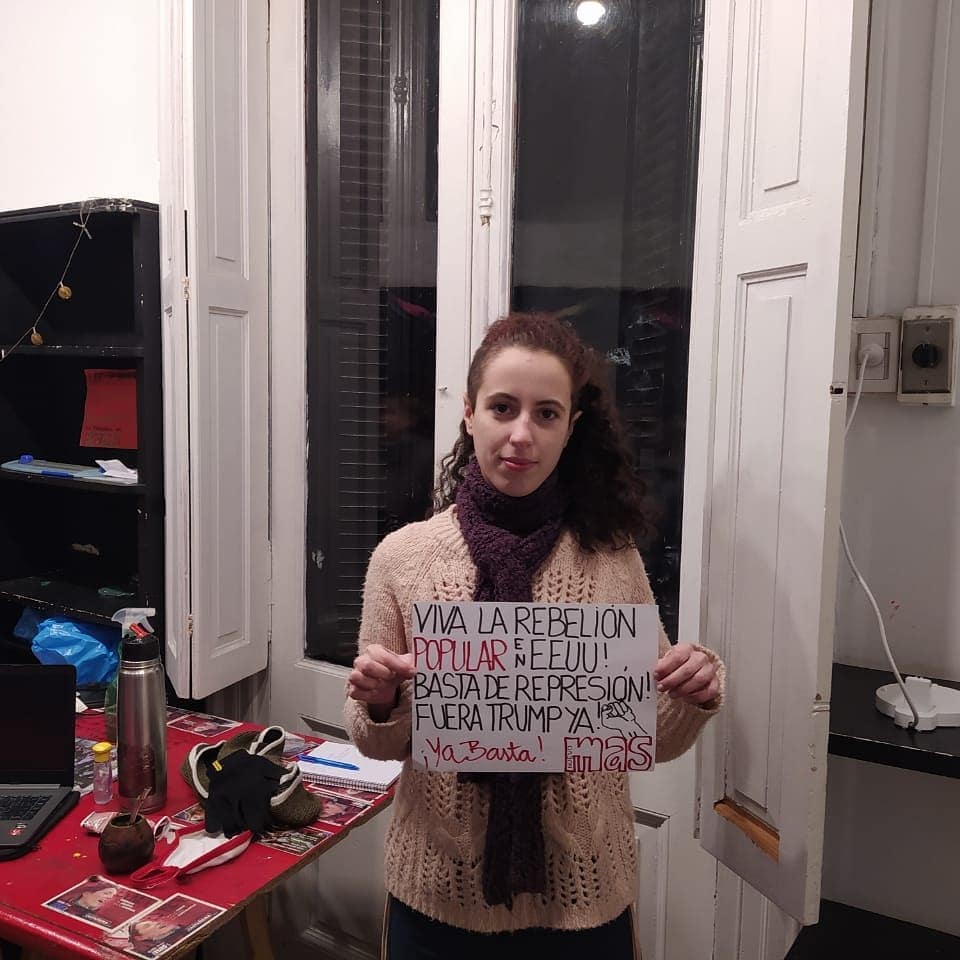 VIVA LA REBELIÓN
POPULAR EN EEUU!
BASTA DE REPRESIÓN!
FUERA TRUMP YA!
¡Ya Basta!
mas